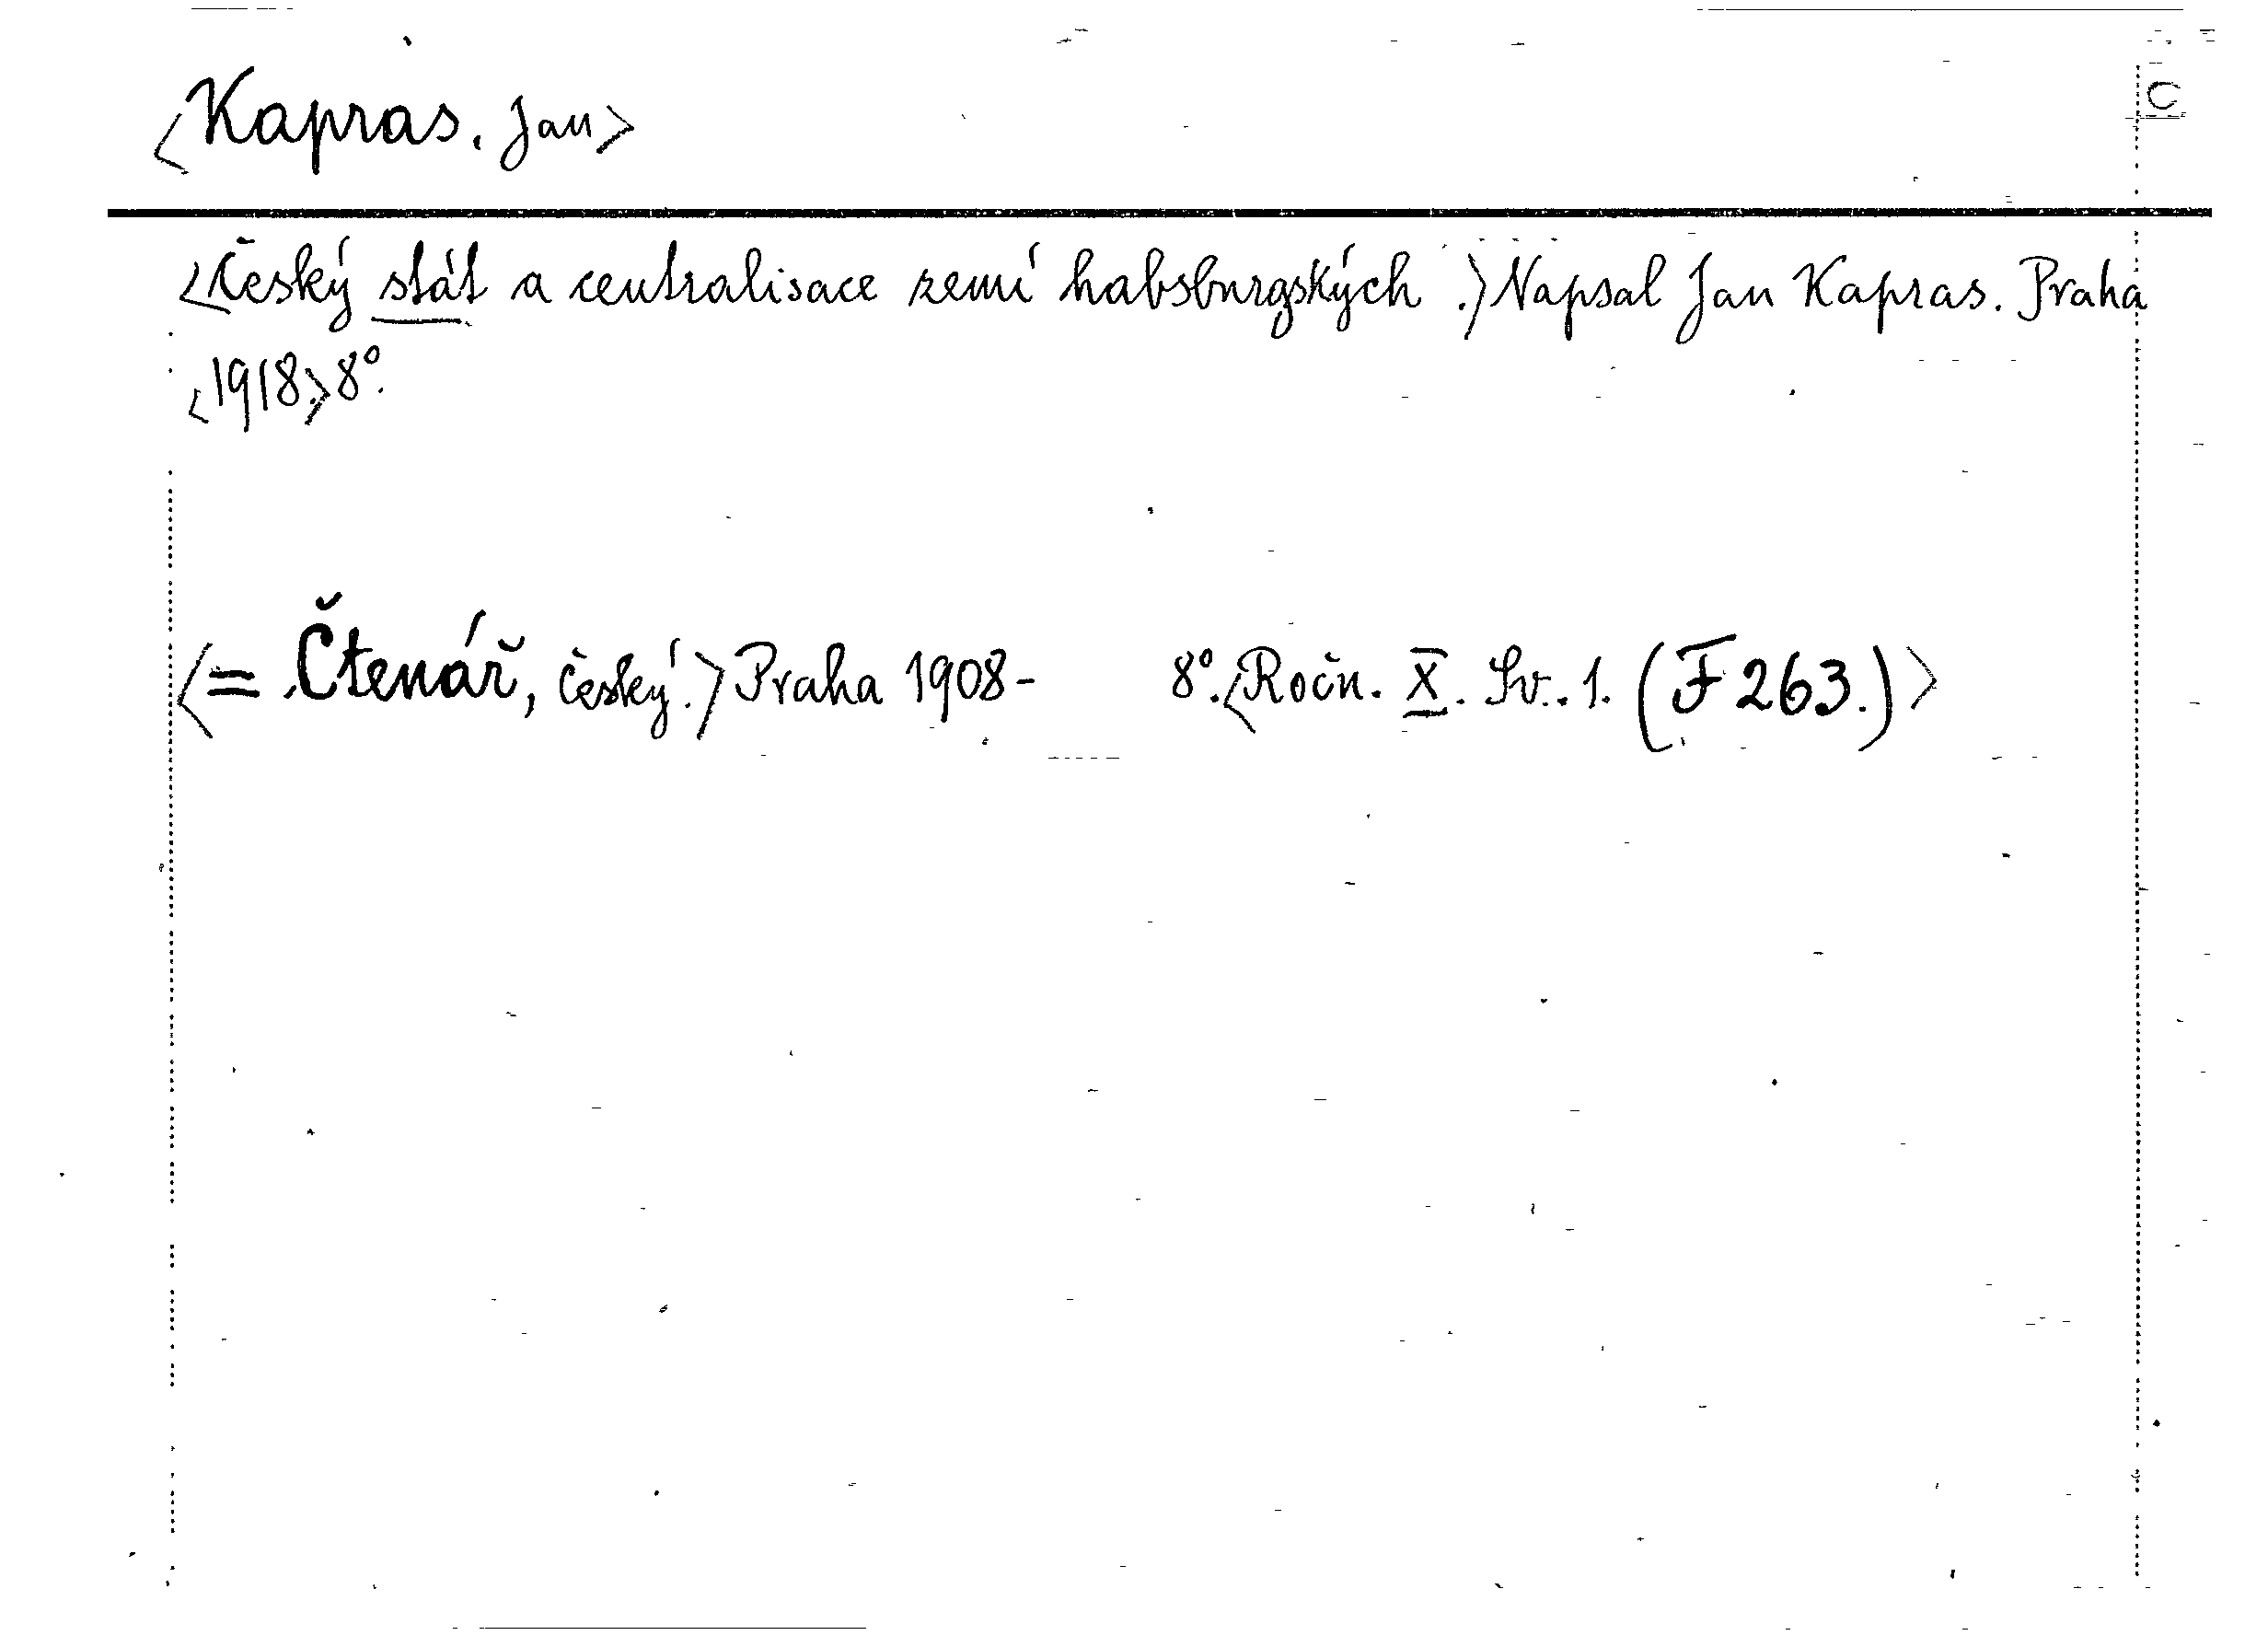 <Kapras, Jan>
C
<Český stát a centralisace zemí habsburgských.> Napsal Jan Kapras. Praha
<1918.> 8°.
<= Čtenář, český.> Praha 1908- 8°. <Ročn. X. Sv. 1. (F 263.)>